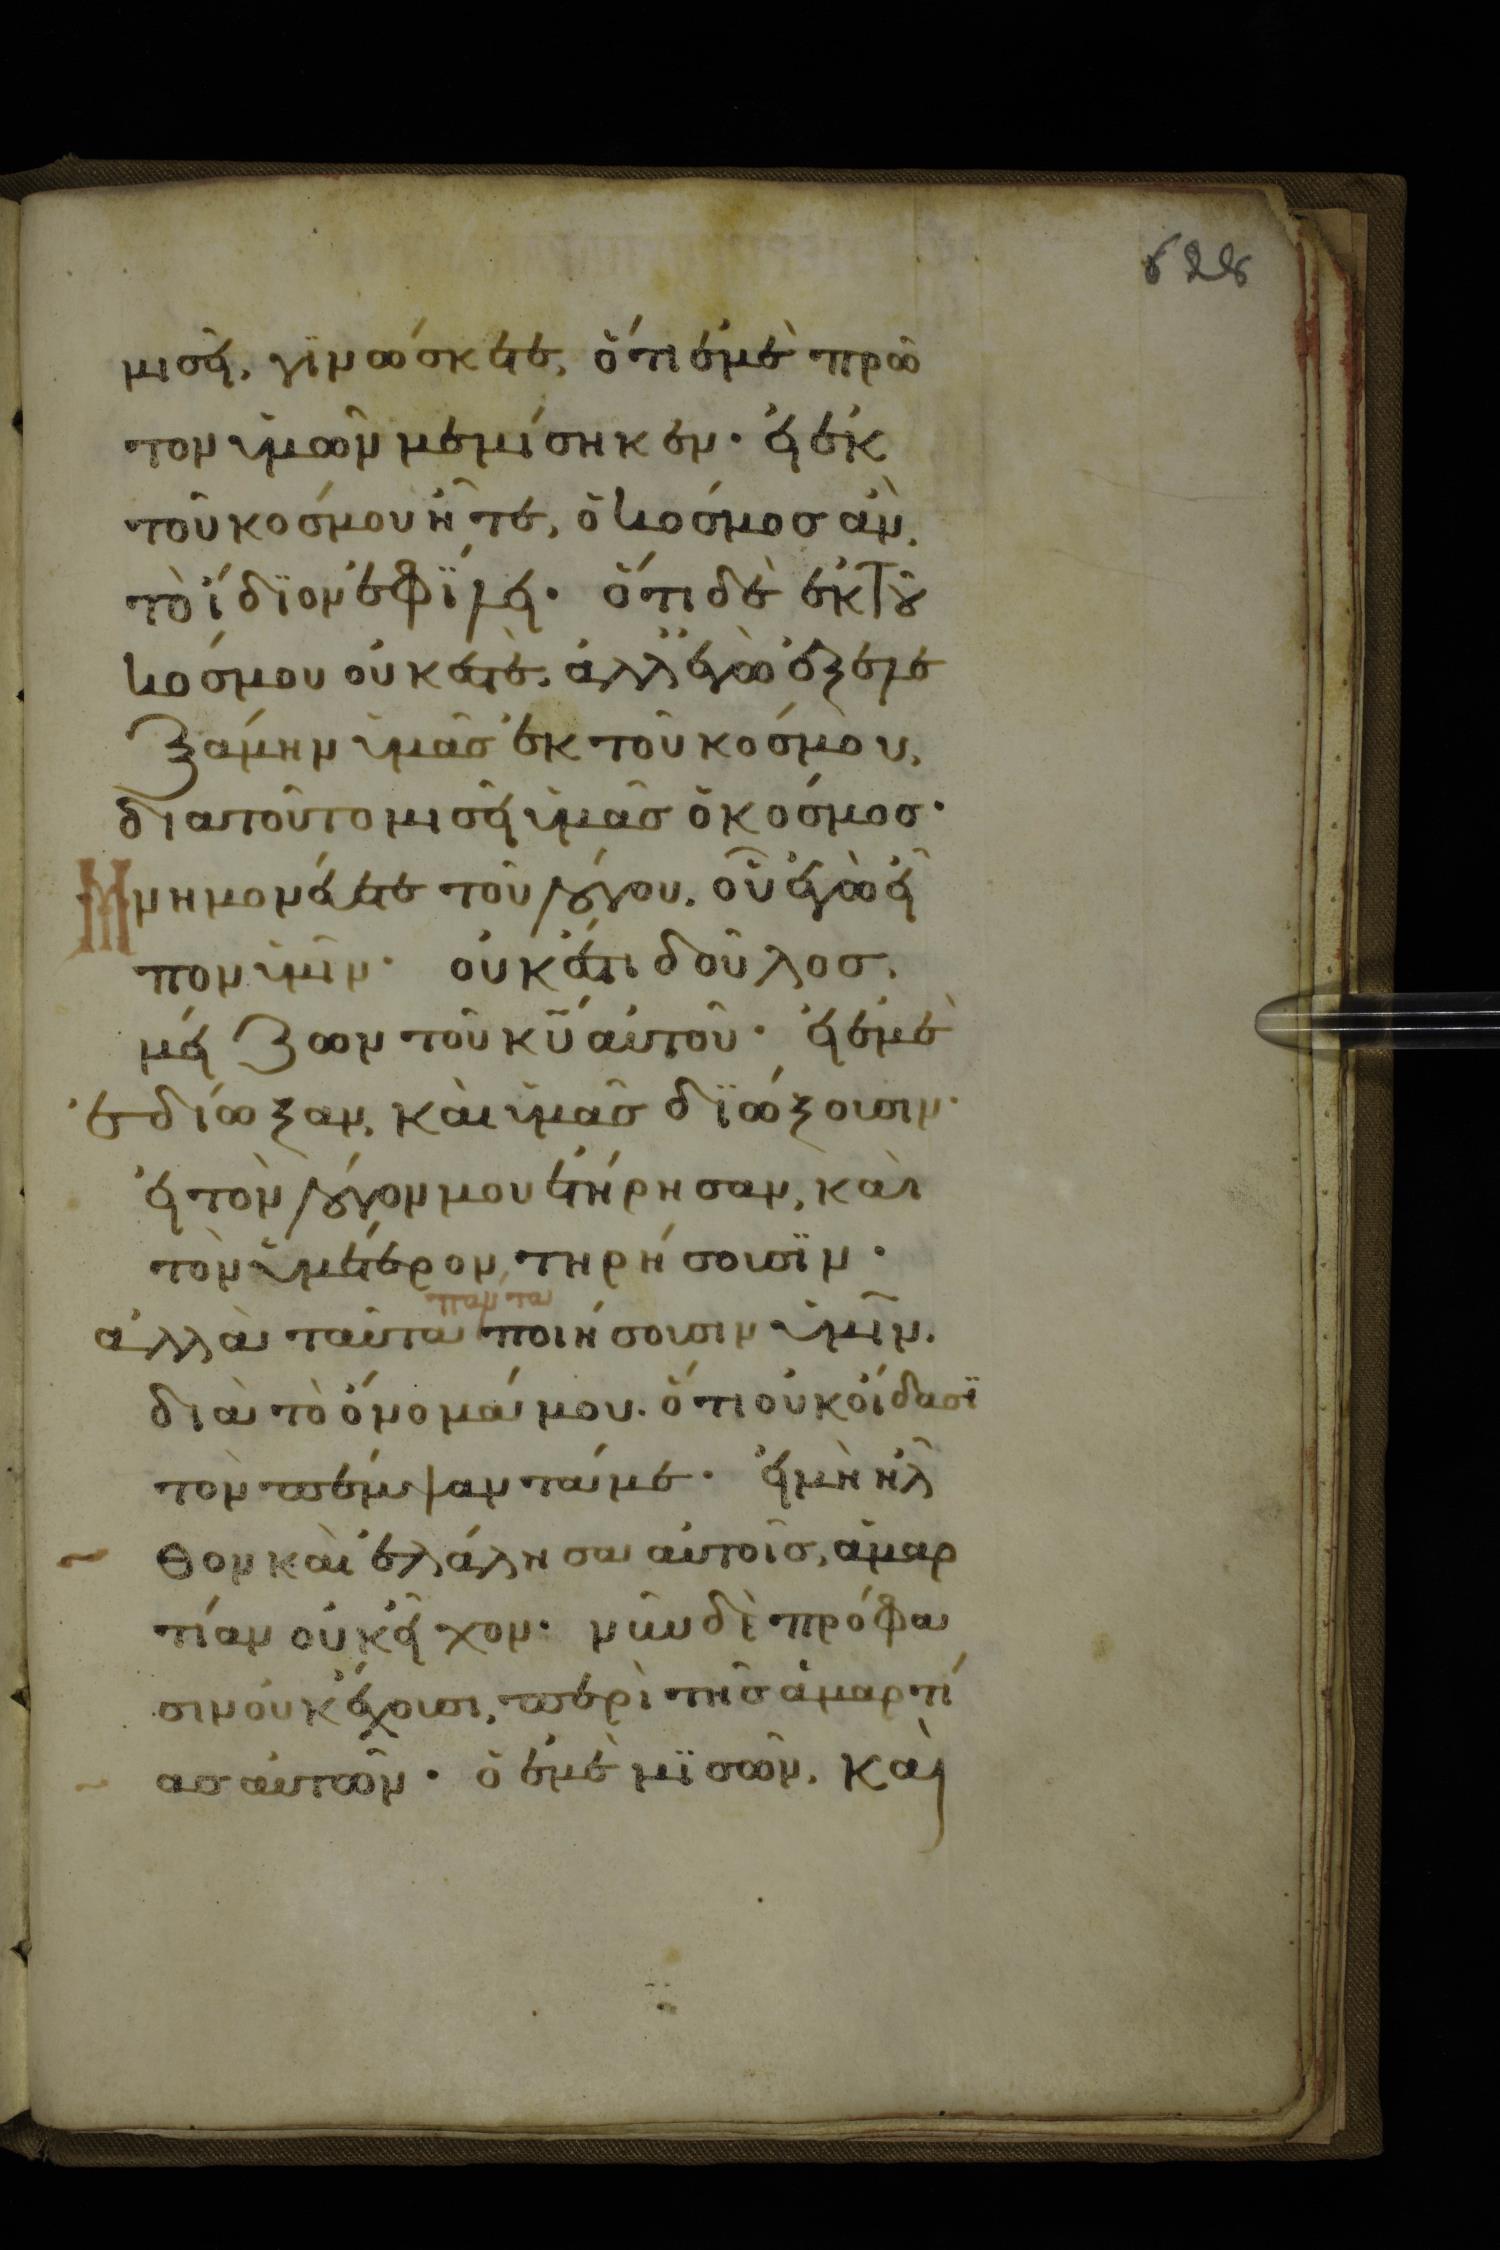 628
μισεῖ, γϊνώσκετε, ὅτι ἐμὲ πρῶ
τον ὑμῶν μεμίσηκεν· εἰ ἐκ
τοῦ κόσμου ἦτε, ὁ κόσμος ἂν,
τὸ ἴδϊον ἐφΐλει· ὅτι δὲ ἐκ τοῦ
κόσμου οὐκ ἐστὲ. ἀλλ ἐγὼ ἐξελε
ξάμην ὑμᾶς ἐκ τοῦ κόσμου,
διατοῦτο μισεῖ ὑμᾶς ὁ κόσμος·
Μνημονέυετε τοῦ λόγου, οὗ ἐγὼ εἶ
πον ὑμῖν· οὐκ ἔστι δοῦλος,
μείζων τοῦ κῡ αὐτοῦ· εἰ ἐμὲ
ἐδίωξαν, καὶ ὑμᾶς δϊώξουσιν·
εἰ τὸν λόγον μου ἐτήρησαν, καὶ
τὸν ὑμέτερον τηρήσουσϊν·
πάντα
ἀλλὰ ταῦτα ποιήσουσιν ὑμῖν.
διὰ τὸ ὄνομά μου. ὅτι οὐκ οἴδασϊ
τὸν πέμψαντά με· εἰ μὴ ἦλ
θον καὶ ἐλάλησα αὐτοῖς, ἁμαρ
τίαν οὐκ εἶχον· νῦν δὲ πρόφα
σιν οὐκ ἔχουσι, περὶ τῆς ἁμαρτί
ας αὐτῶν· ὁ ἐμὲ μϊσῶν, καὶ